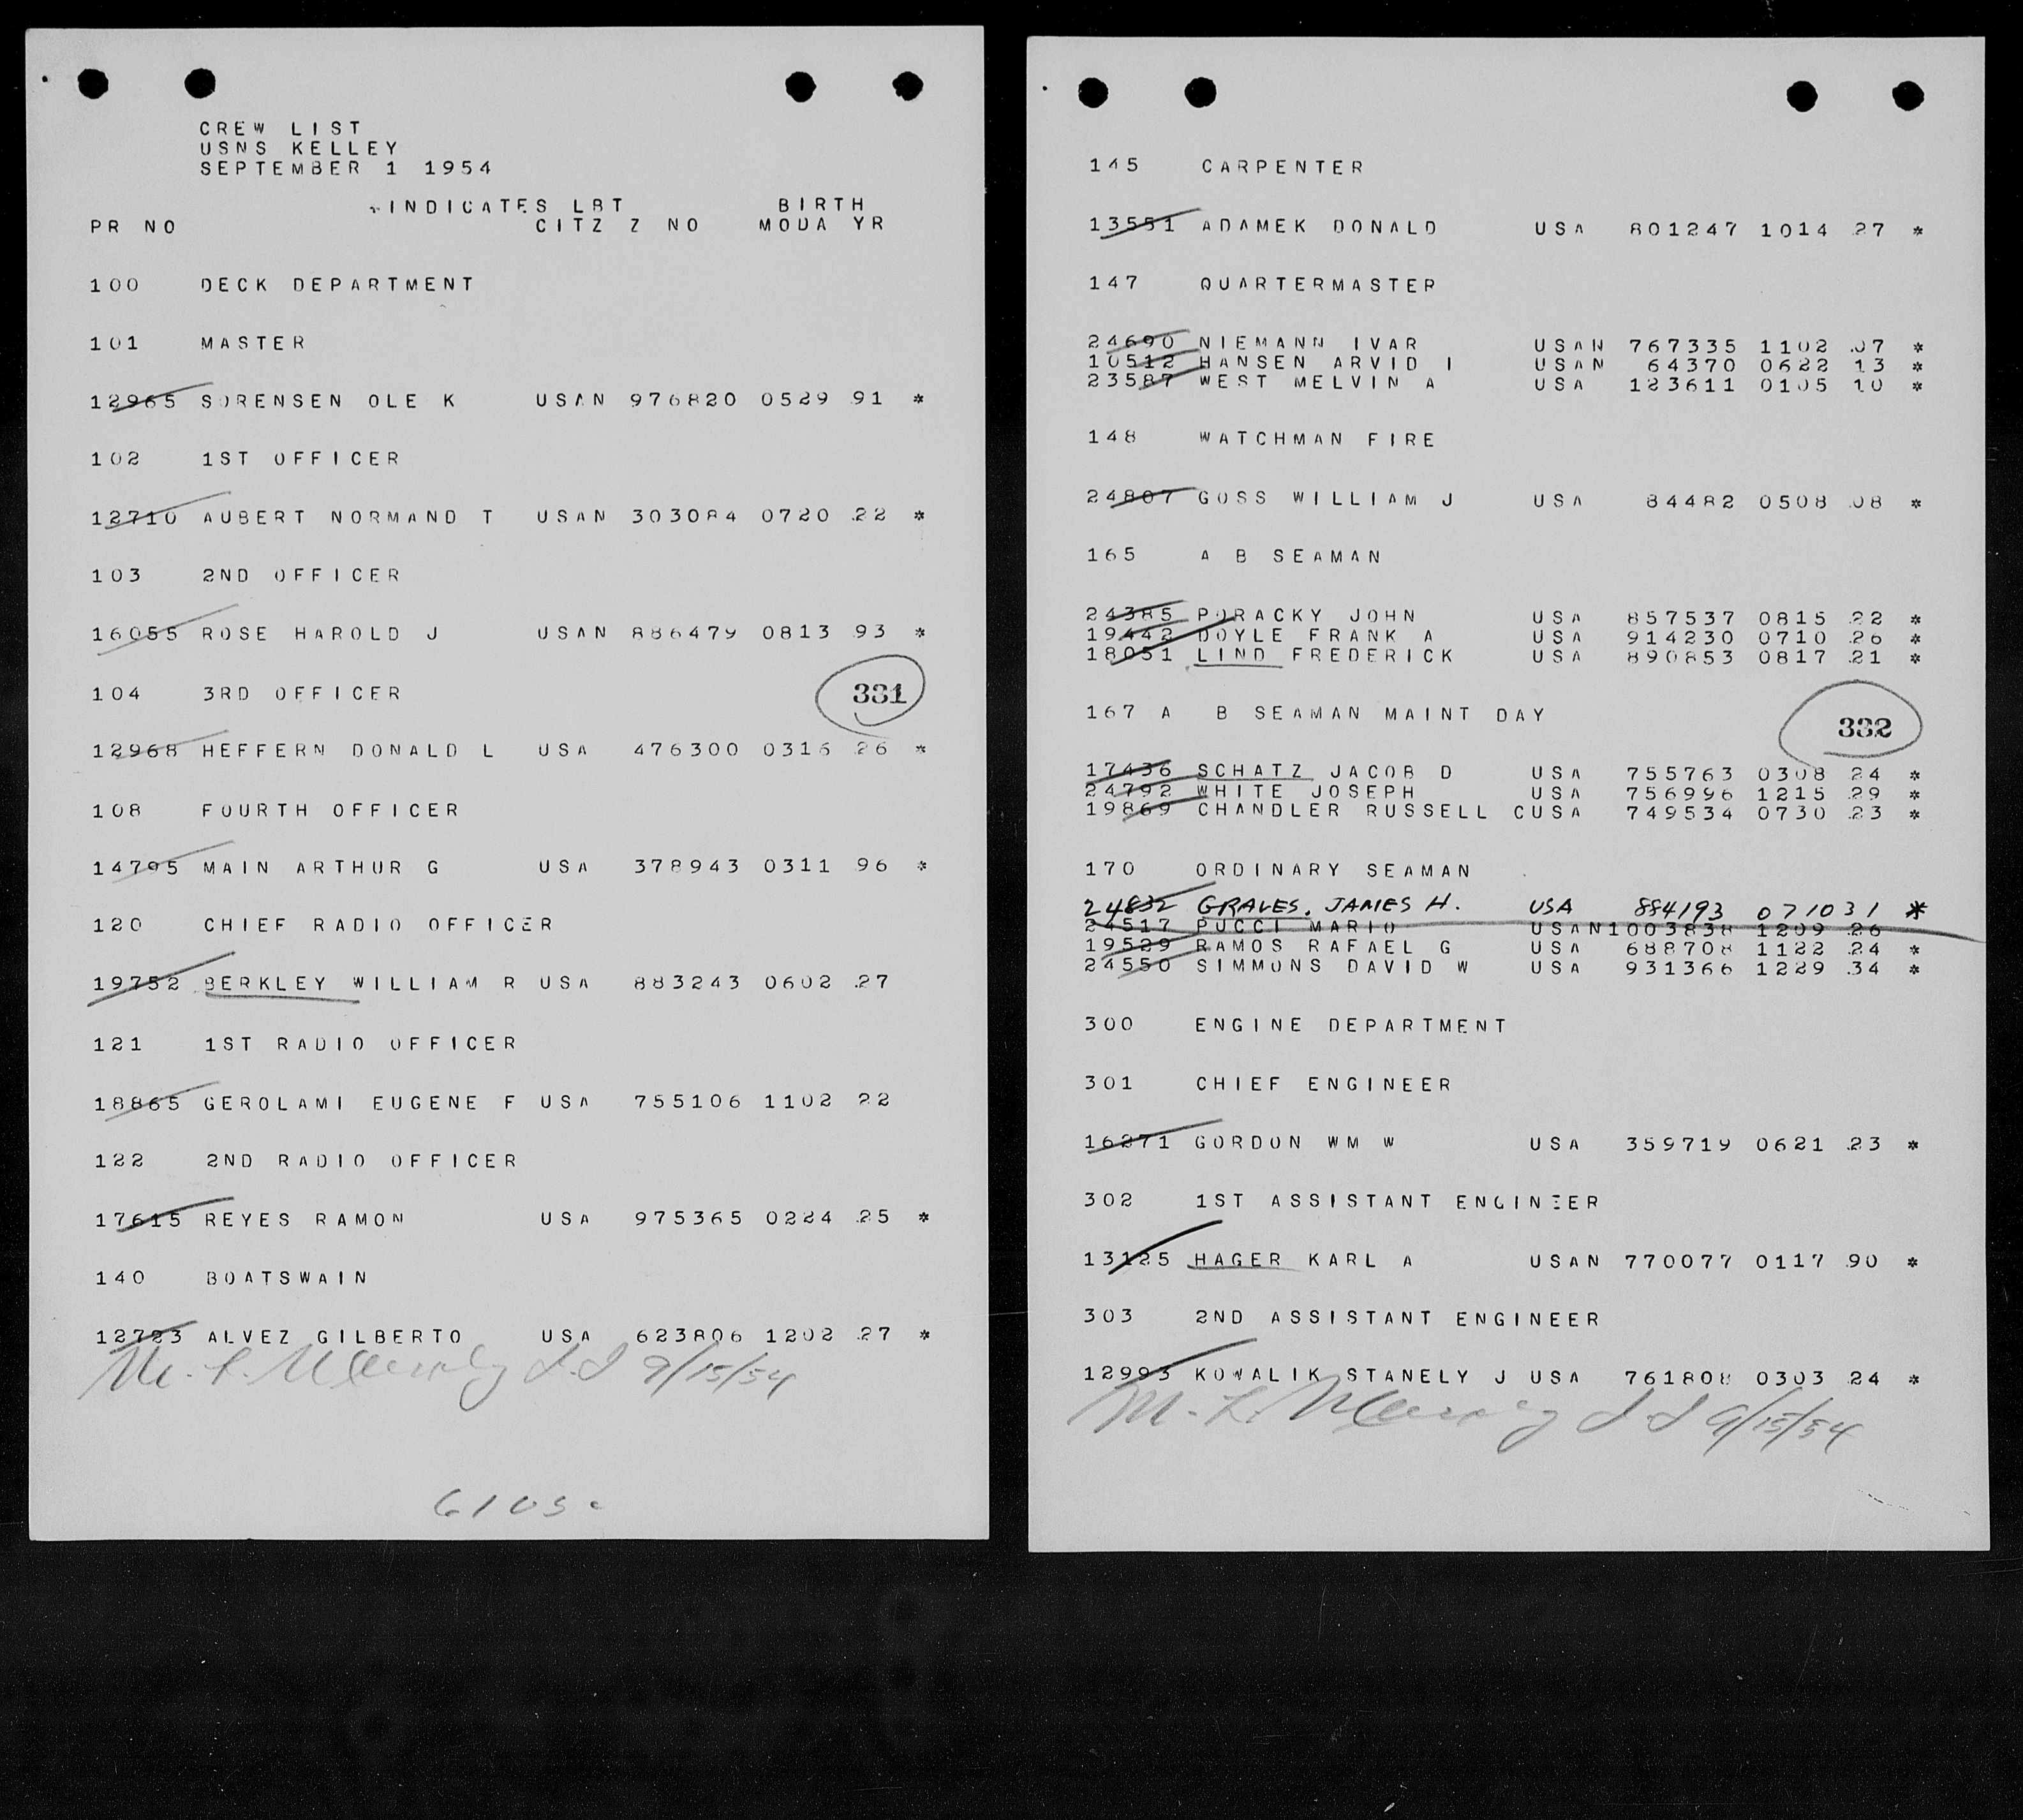 CREW LIST
USNS KELLEY
SEPTEMBER 1 1954
*INDICATES LBT BIRTH
PR NO CITZ Z NO MODA YR
100 DECK DEPARTMENT
101 MASTER
12965 SORENSEN OLE K USAN 976820 0529 91 *
102 1ST OFFICER
12710 AUBERT NORMAND T USAN 303084 0720 22 *
103 2ND OFFICER
16055 ROSE HAROLD J USAN 886479 0813 93 *
104 3RD OFFICER
331
12968 HEFFERN DONALD L USA 476300 0316 26 *
108 FOURTH OFFICER
14795 MAIN ARTHUR G USA 378943 0311 96 *
120 CHIEF RADIO OFFICER
19752 BERKLEY WILLIAM R USA 883243 0602 27
121 1ST RADIO OFFICER
18865 GEROLAMI EUGENE F USA 755106 1102 22
122 2ND RADIO OFFICER
17615 REYES RAMON USA 975365 0224 25 *
140 BOATSWAIN
12723 ALVEZ GILBERTO USA 623806 1202 27 *
9/15/54
6103.
145 CARPENTER
13551 ADAMEK DONALD USA 801247 1014 27 *
147 QUARTERMASTER
24690 NIEMANN IVAR USAN 767335 1102 07 *
10512 HANSEN ARVID I USAN 64370 0622 13 *
23587 WEST MELVIN A USA 123611 0105 10 *
148 WATCHMAN FIRE
24807 GOSS WILLIAM J USA 84482 0508 08 *
165 A B SEAMAN
24385 PORACKY JOHN USA 857537 0815 22 *
19442 DOYLE FRANK A USA 914230 0710 26 *
18051 LIND FREDERICK USA 890853 0817 21 *
167 A B SEAMAN MAINT DAY
332
17436 SCHATZ JACOB D USA 755763 0308 24 *
24792 WHITE JOSEPH USA 756996 1215 29 *
19869 CHANDLER RUSSELL CUSA 749534 0730 23 *
170 ORDINARY SEAMAN
24832 GRAVES, JAMES H. USA 884193 071031 *
24517 PUCCI MARIO USAN1003838 1209 26
19529 RAMOS RAFAEL G USA 688708 1122 24 *
24550 SIMMONS DAVID W USA 931366 1229 34 *
300 ENGINE DEPARTMENT
301 CHIEF ENGINEER
16271 GORDON WM W USA 359719 0621 23 *
302 1ST ASSISTANT ENGINEER
13125 HAGER KARL A USAN 770077 0117 90 *
303 2ND ASSISTANT ENGINEER
12993 KOWALIK STANELY J USA 761808 0303 24 *
9/15/54